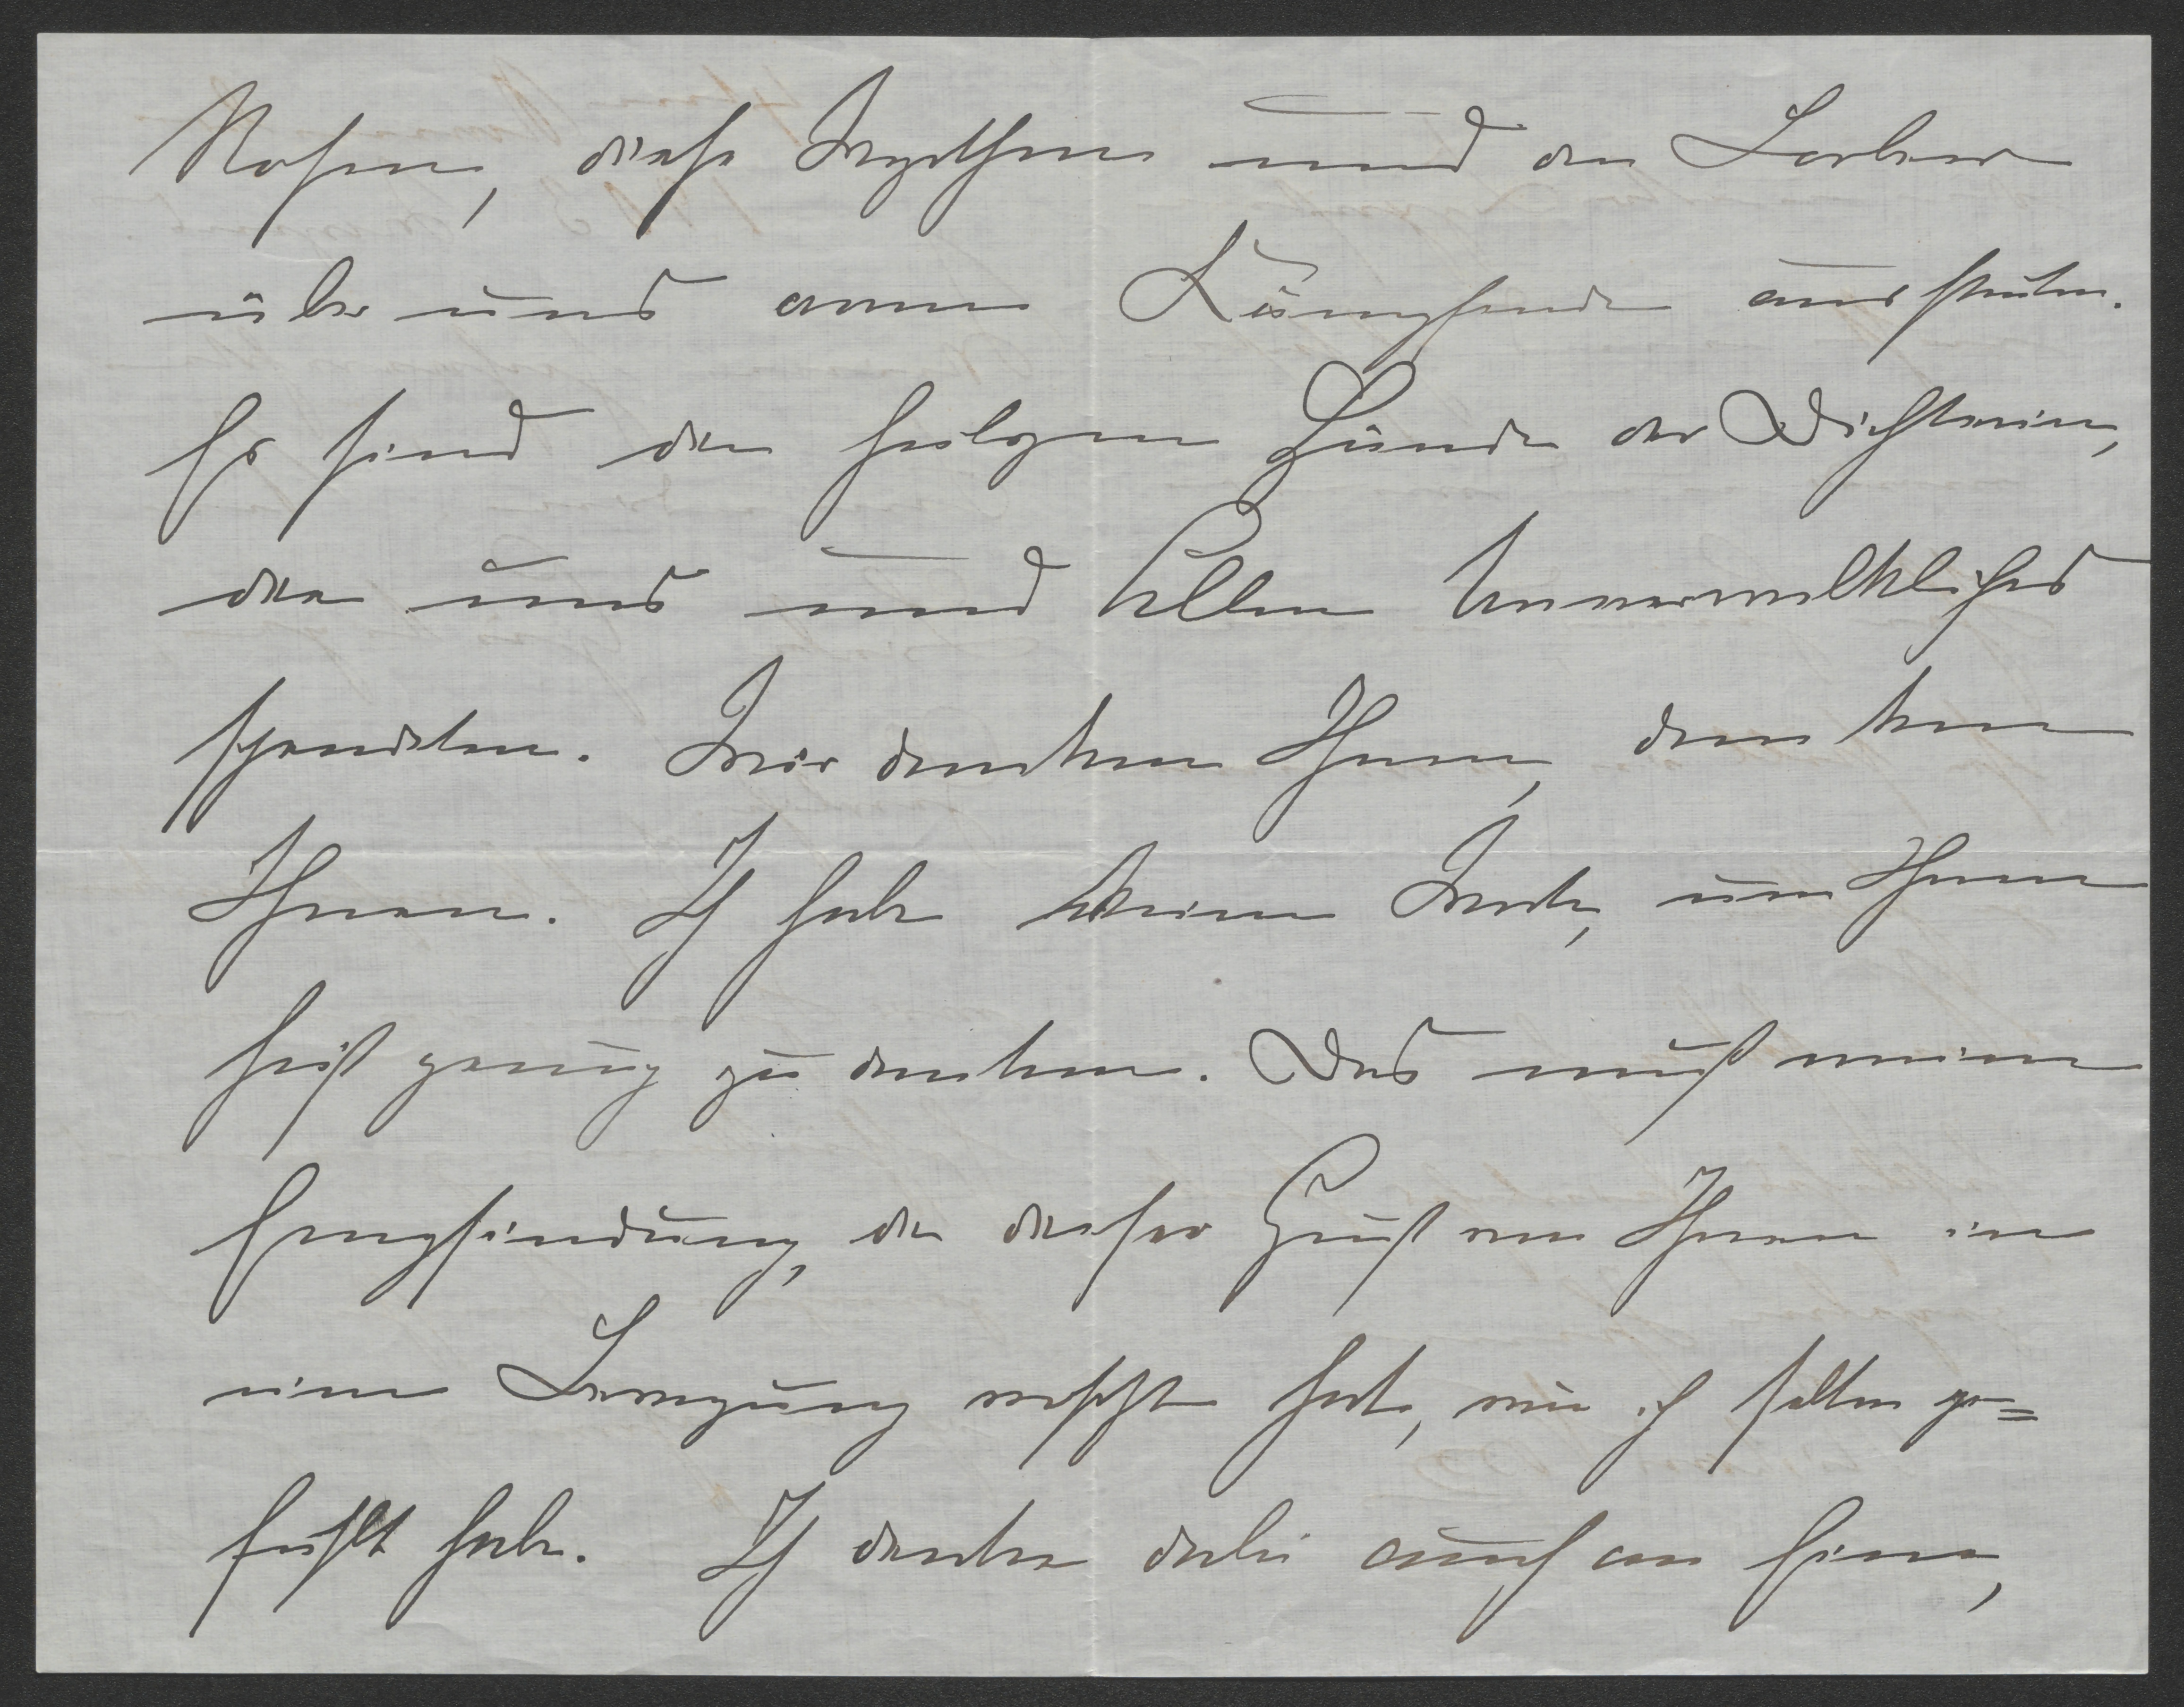 Rosen, diese Myrthen und den Lorbeer
über uns arme Kämpfende ausstreuten.
Es sind die heiligen Hände der Dichterin,
die uns und Allen Unverwelkliches
spendeten. Wir danken Ihnen, danken
Ihnen. Ich habe keine Worte, um Ihnen
heiß genug zu danken. Das muß meine
Empfindung, die dieser Gruß von Ihnen in
eine Bewegung versetzt hat, wie ich selten ge=
fühlt habe. Ich denke dabei auch an Eine,